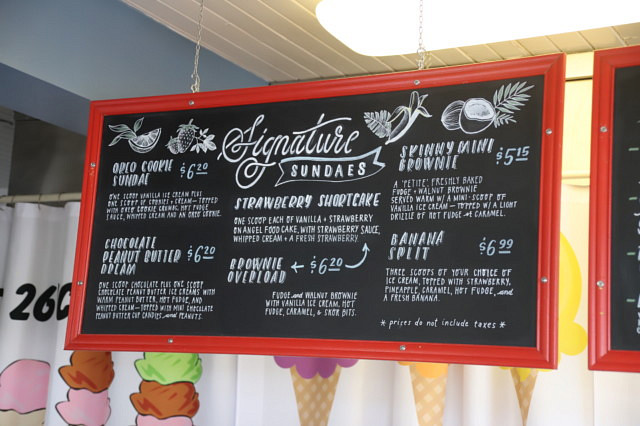 Signature
SUNDAES
OREO COOKIE
SUNDAE
$6.20
ONE SCOOP VANILLA ICE CREAM PLUS
ONE SCOOP OF COOKIES + CREAM — TOPPED
WITH OREO COOKIE CRUMBS, HOT FUDGE
SAUCE, WHIPPED CREAM AND AN OREO COOKIE.
CHOCOLATE
PEANUT BUTTER
DREAM
$6.20
ONE SCOOP CHOCOLATE PLUS ONE SCOOP
CHOCOLATE PEANUT BUTTER ICE CREAMS WITH
WARM PEANUT BUTTER, HOT FUDGE, AND
WHIPPED CREAM — TOPPED WITH MINI CHOCOLATE
PEANUT BUTTER CUP CANDIES, and PEANUTS.
STRAWBERRY SHORTCAKE
ONE SCOOP EACH OF VANILLA + STRAWBERRY
ON ANGEL FOOD CAKE, WITH STRAWBERRY SAUCE,
WHIPPED CREAM + A FRESH STRAWBERRY.
BROWNIE
OVERLOAD
← $6.20
FUDGE and WALNUT BROWNIE
WITH VANILLA ICE CREAM, HOT
FUDGE, CARAMEL, & SNOR BITS.
SKINNY MINI
BROWNIE
$5.15
A 'PETITE', FRESHLY BAKED
FUDGE + WALNUT BROWNIE
SERVED WARM W/ A MINI-SCOOP OF
VANILLA ICE CREAM — TOPPED W/ A LIGHT
DRIZZLE OF HOT FUDGE or CARAMEL.
BANANA
SPLIT
$6.99
THREE SCOOPS OF YOUR CHOICE OF
ICE CREAM, TOPPED WITH STRAWBERRY,
PINEAPPLE, CARAMEL, HOT FUDGE, and
A FRESH BANANA.
* prices do not include taxes *
260